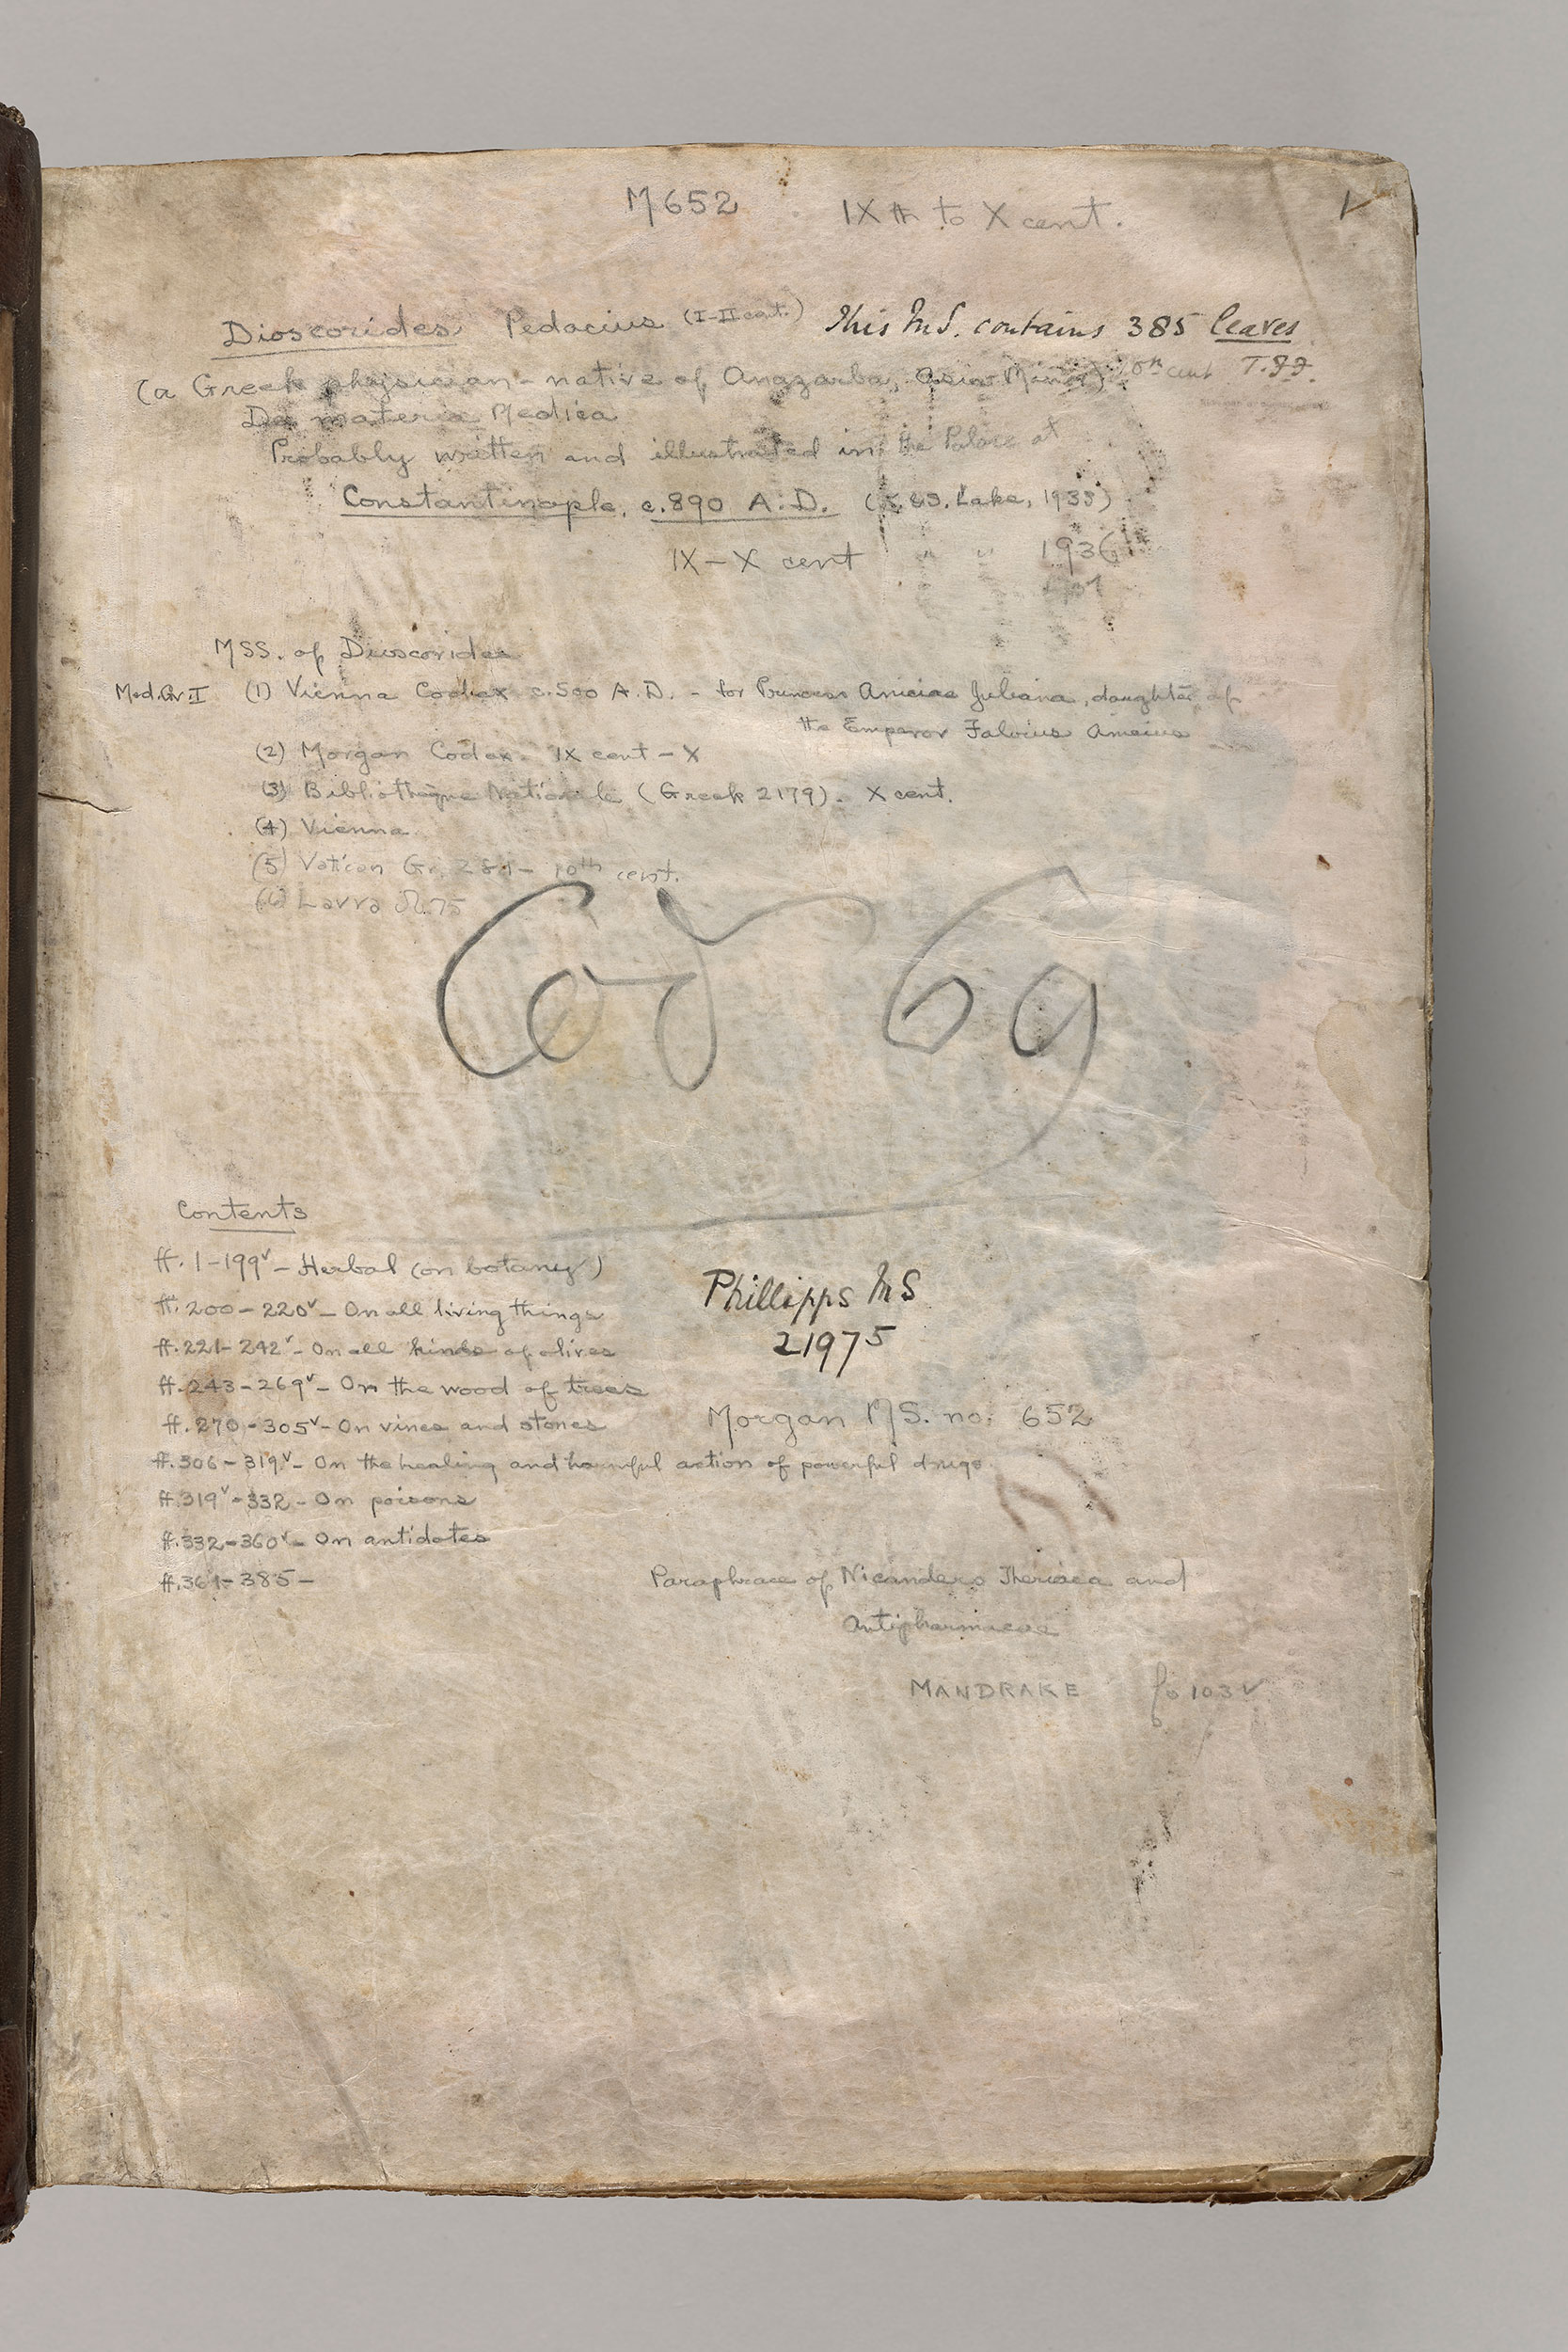 M 652 IXth to X cent. 1
Dioscorides Pedacius (I-II cent.) This MS. contains 385 leaves
(a Greek physician - native of Anazarba, Asia Minor) 10th cent T.FF.
De materia Medica
Probably written and illustrated in the Palace at
Constantinople, c.890 A.D. (K.&S. Lake, 1935)
IX-X cent " " 1936
MSS. of Dioscorides
Med.Gr.I (1) Vienna Codex c.500 A.D. - for Princess Aniciae Juliana, daughter of
the Emperor
(2) Morgan Codex - IX cent - X
(3) Bibliothèque Nationale (Greek 2179). X cent.
(4) Vienna
(5) Vatican Gr. 284 - 10th cent.
(6) Lavra Ω.75
Cod 69
Contents
ff. 1-199v - Herbal (on botany)
ff. 200-220v - On all living things
ff. 221-242v - On all kinds of olives
ff. 243-269v - On the wood of trees
ff. 270-305v - On vines and stones
ff. 306-319v - On the healing and harmful action of powerful drugs
ff. 319v-332 - On poisons
ff. 332-360v - On antidotes
ff. 361-385 -
Phillipps MS
21975
Morgan MS. no. 652
Paraphrase of Nicanders Theriaca and
Antipharmacia
MANDRAKE fo 103v